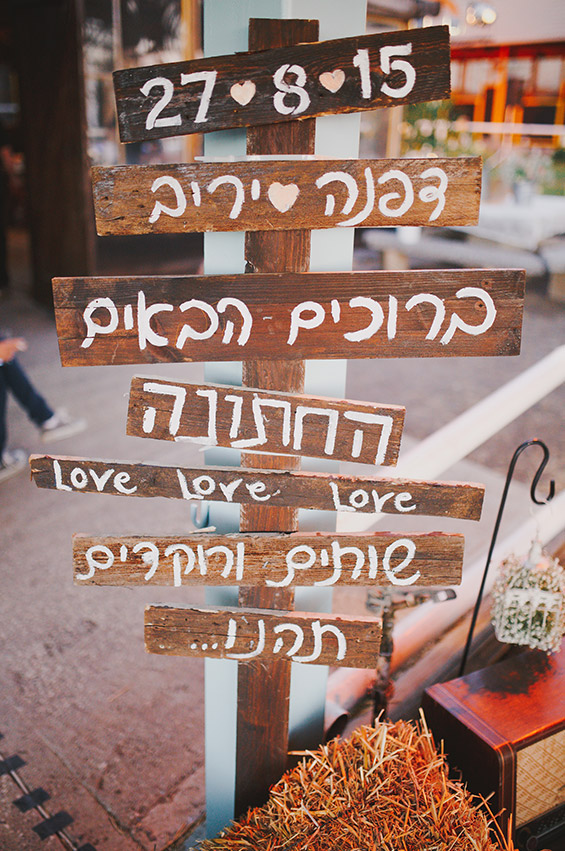 27 ♥ 8 ♥ 15
דפנה ♥ יריב
ברוכים הבאים
החתונה
Love Love Love
שותים ורוקדים
תהנו...